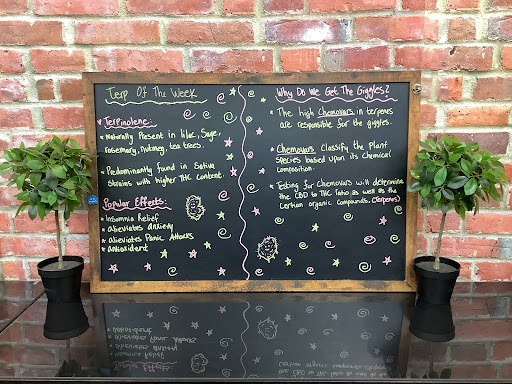 Terp Of The Week
Terpinolene:
Naturally Present in lilac, Sage,
rosemary, nutmeg, tea trees.
Predominantly found in Sativa
Strains with higher THC content.
Popular Effects:
Insomnia Relief
alieviates anxiety
alieviates Panic Attacks
antioxident
Why Do We Get The Giggles?
The high Chemovars in terpenes
are responsible for the giggles.
Chemovars Classify the Plant
Species based upon its chemical
composition.
Testing for Chemovars will determine
the CBD to THC ratio as well as the
Certian organic compounds. (Terpenes)